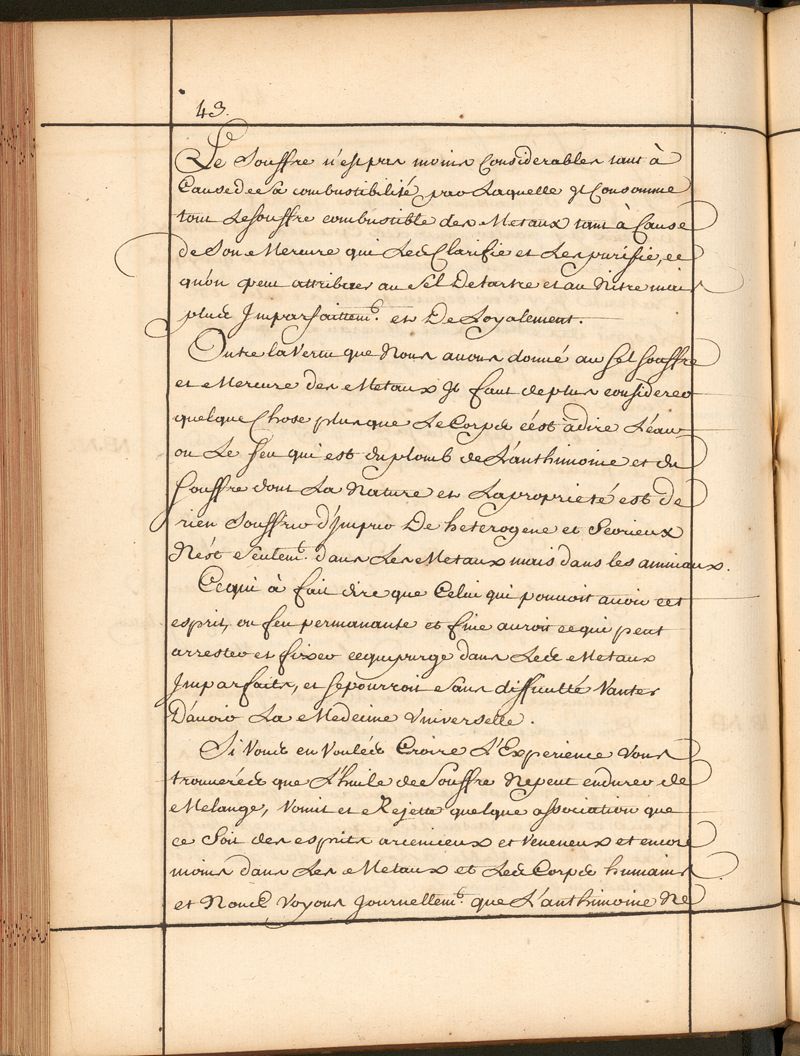 43.
Le Souffre n'est pas moins Considerables tant à
Cause de Sa combustibilité par Laquelle Jl Consomme
tout Le souffre combustible des Metaux tant à Cause
de Son Mercure qui Les Clarifie et Les purifie, ce
qu'on peut attribuer au Sel De tartre et au Nitre mais
plus Jmparfaittem.t et De Loyalement.
Outre la Vertu que Nous auons donné au Sel Souffre
et Mercure des Metaux Jl faut de plus considerer
quelque Chose plus que Le Corps c'est adire L'eau
ou Le feu qui est du plomb de L'anthimoine et du
Souffre dont La Nature et La proprieté est de
rien Souffrir d'Jmpur De heterogene et
N'est Seulem.t dans Les Metaux mais dans les aminaux.
Cequi à fait dire que Celui qui pouuoit auoir cet
esprit, ou feu permanante et fixe auroit ce qui peut
arrester et fixer ce qui purge dans Les Metaux
Jmparfaits, et se pourroit Sans difficulté Vanter
D'auoir La Medecine Vniverselle.
Si Vous en Voulés Croire L'Experience Vous
trouuerés que L'huile de Souffre Ne peut endurer de
Melange, Vomit et Rejette quelque association que
ce Soit des esprits arcenieux et Veneneux et encore
moins dans Les Metaux et Les Corps humains
et Nous Voyons Journellem.t que L'anthimoine Ne